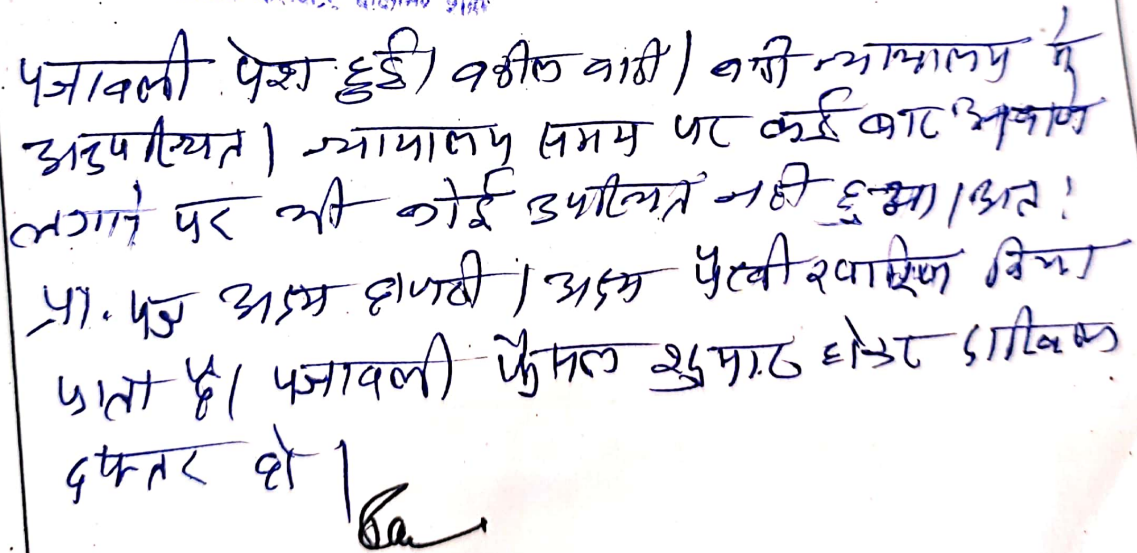 पत्रावली पेश हुई। वकील वादी। वादी न्यायालय में
अनुपस्थित। न्यायालय समय पर कई बार आवाज
लगाने पर भी कोई उपस्थित नहीं हुआ। अतः
प्रा. पत्र अदम हाजरी / अदम पैरवी खारिज किया
जाता है। पत्रावली फैसल शुमार होकर दाखिल
दफ्तर हो।